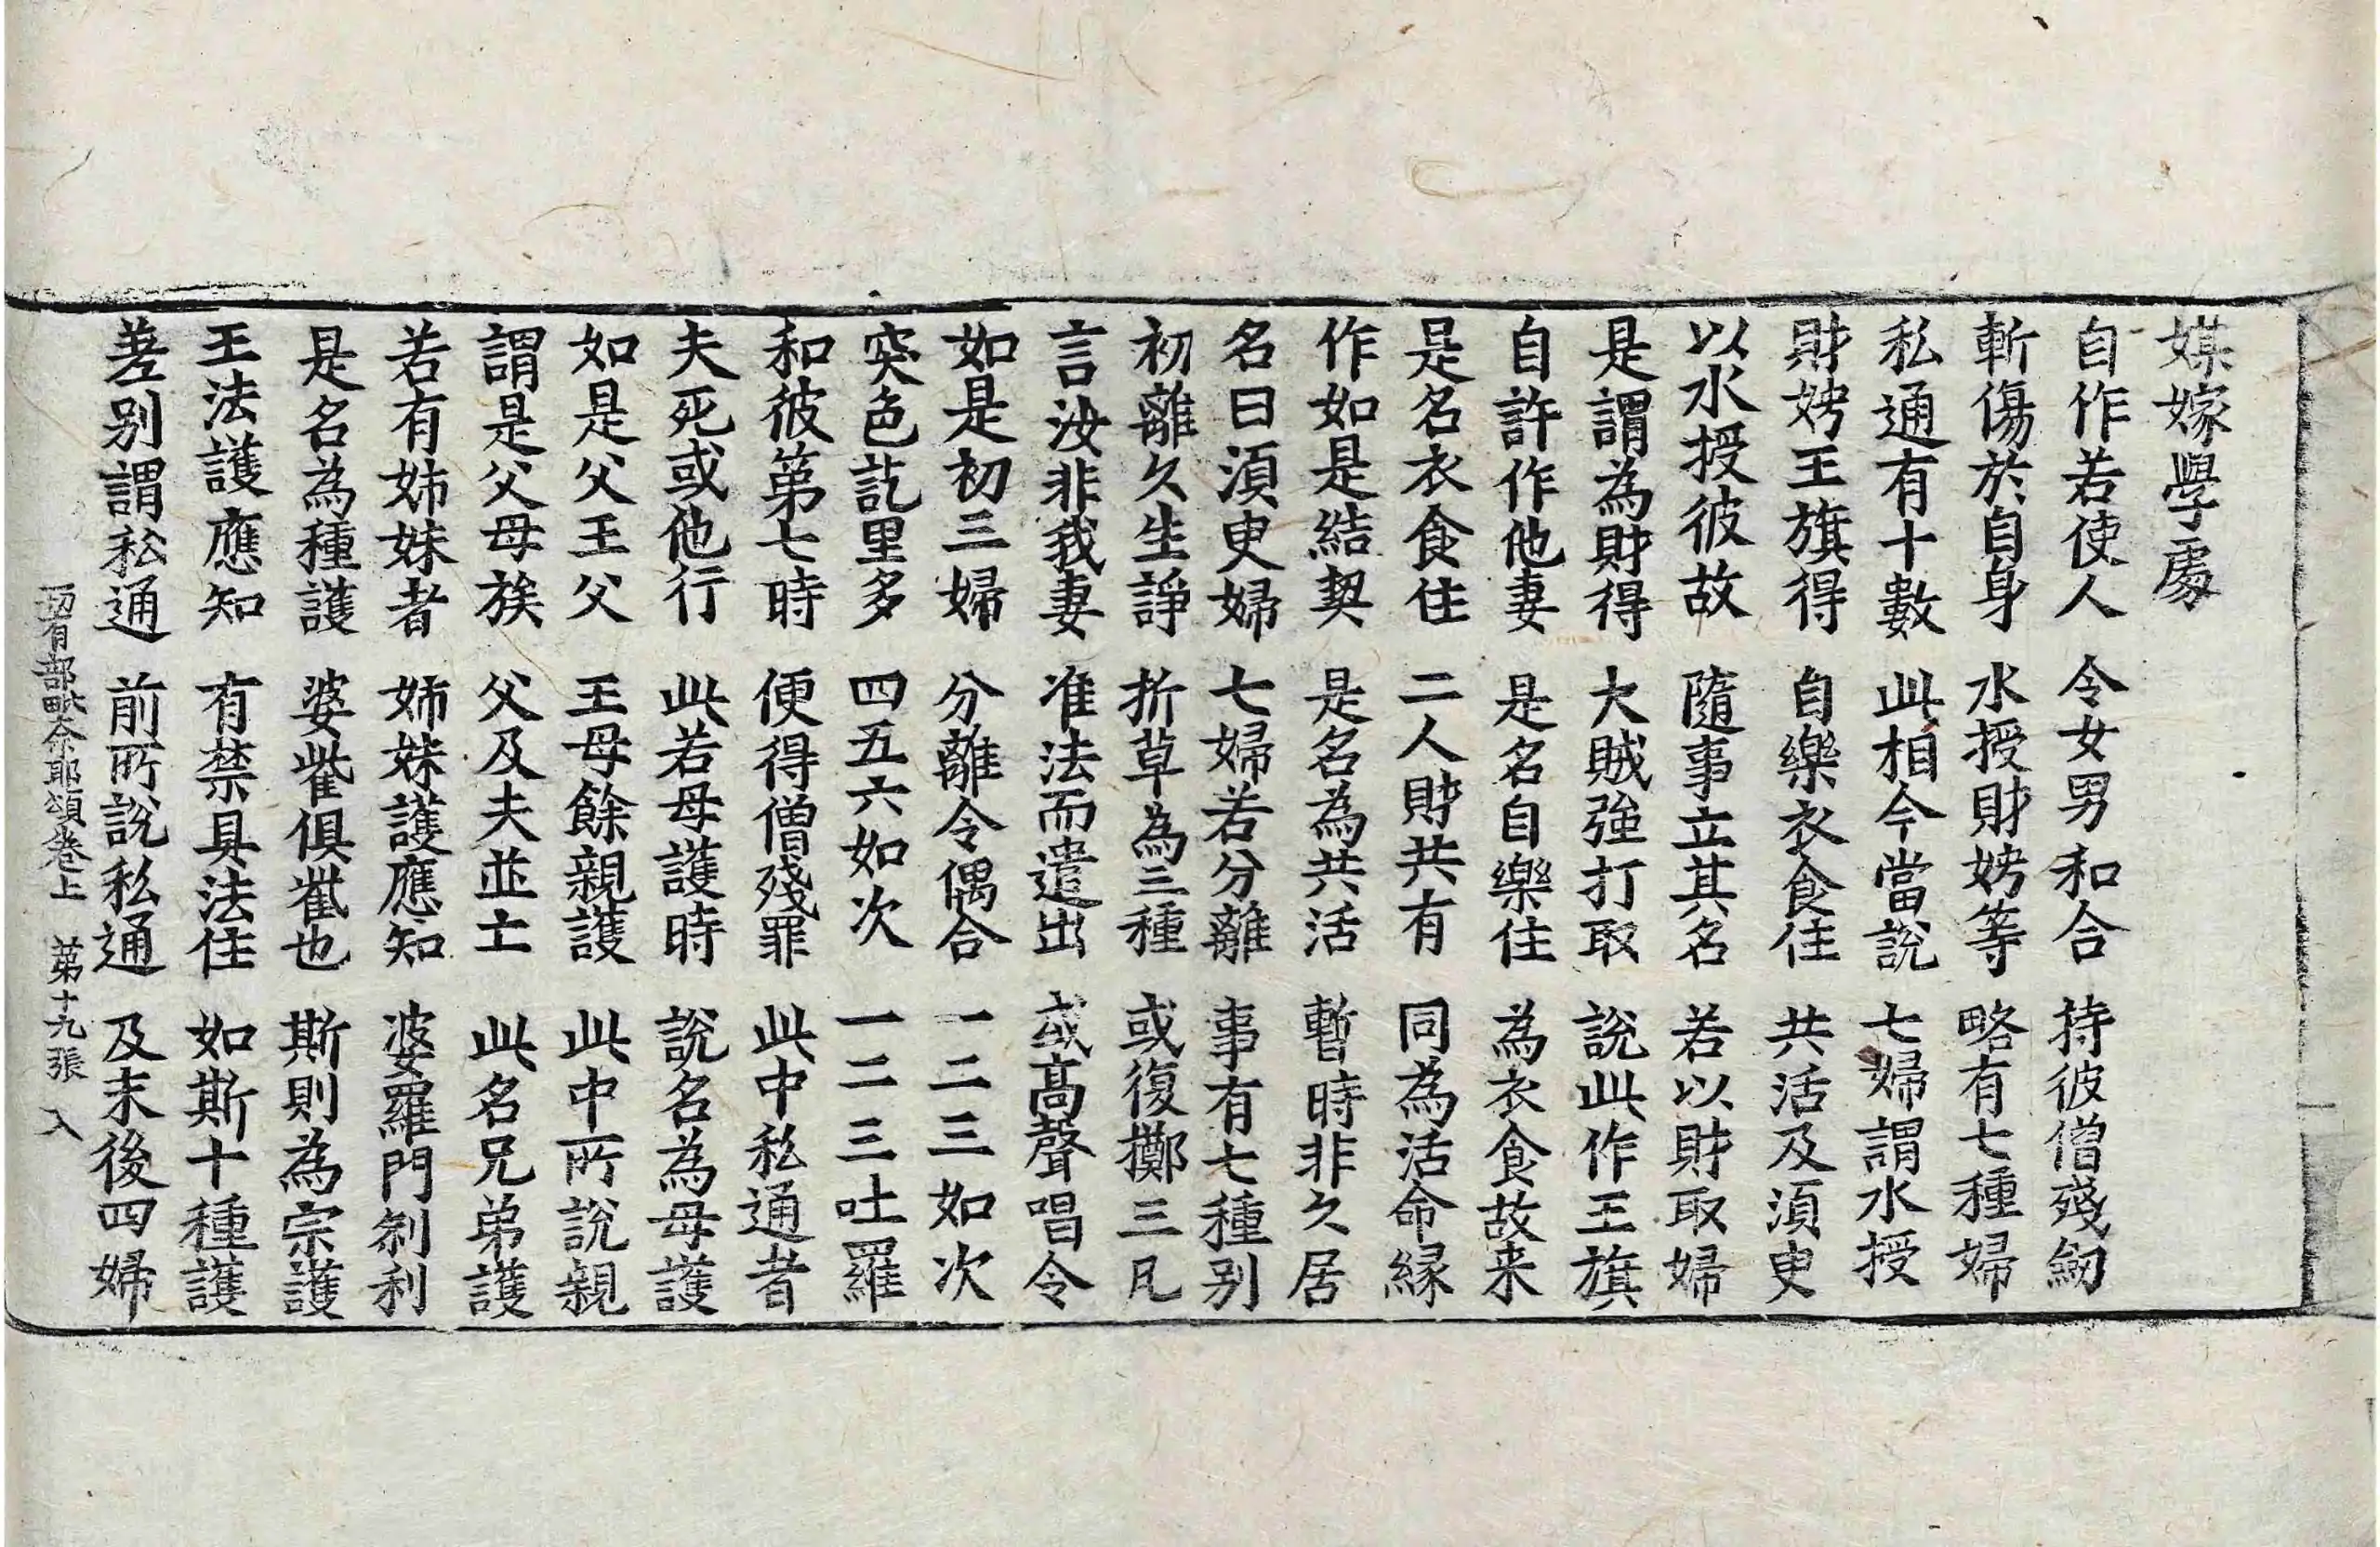 媒嫁學處
自作若使人　令女男和合　持彼僧殘劒
斬傷於自身　水授財娉等　略有七種婦
私通有十數　此相今當說　七婦謂水授
財娉王旗得　自樂衣食住　共活及湏臾
以水授彼故　隨事立其名　若以財取婦
是謂為財得　大賊強打取　說此作王旗
自許作他妻　是名自樂住　為衣食故来
是名衣食住　二人財共有　同為活命縁
作如是結契　是名為共活　暫時非久居
名曰湏臾婦　七婦若分離　事有七種别
初離久生諍　折草為三種　或復擲三凡
言汝非我妻　准法而遣出　或髙聲唱令
如是初三婦　分離令偶合　一二三如次
突色訖里多　四五六如次　一二三吐羅
和彼第七時　便得僧殘罪　此中私通者
夫死或他行　此若母護時　說名為母護
如是父王父　王母餘親護　此中所說親
謂是父母族　父及夫並亡　此名兄弟護
若有姉妹者　姉妹護應知　婆羅門刹利
是名為種護　婆雌俱雌也　斯則為宗護
王法護應知　有禁具法住　如斯十種護
差别謂私通　前所說私通　及末後四婦
一切有部毗奈耶頌卷上　第十九張　入